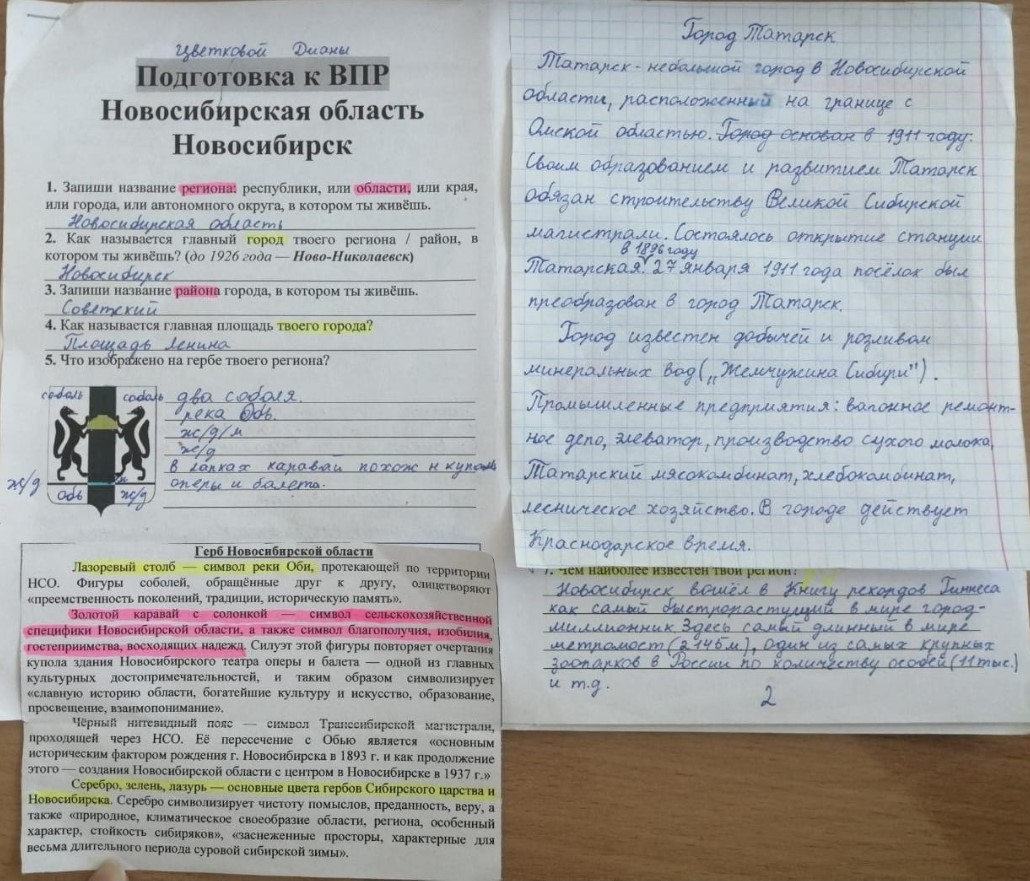 Цветковой Дианы
Подготовка к ВПР
Новосибирская область
Новосибирск
1. Запиши название региона: республики, или области, или края,
или города, или автономного округа, в котором ты живёшь.
Новосибирская область
2. Как называется главный город твоего региона / район, в
котором ты живёшь? (до 1926 года — Ново-Николаевск)
Новосибирск
3. Запиши название района города, в котором ты живёшь.
Советский
4. Как называется главная площадь твоего города?
Площадь Ленина
5. Что изображено на гербе твоего региона?
соболь соболь
два соболя.
река Обь.
ж/д/м
ж/д
в лапках каравай похож н купол
оперы и балета.
ж/д
Обь
ж/д
Герб Новосибирской области
Лазоревый столб — символ реки Оби, протекающей по территории
НСО. Фигуры соболей, обращённые друг к другу, олицетворяют
«преемственность поколений, традиции, историческую память».
Золотой каравай с солонкой — символ сельскохозяйственной
специфики Новосибирской области, а также символ благополучия, изобилия,
гостеприимства, восходящих надежд. Силуэт этой фигуры повторяет очертания
купола здания Новосибирского театра оперы и балета — одной из главных
культурных достопримечательностей, и таким образом символизирует
«славную историю области, богатейшие культуру и искусство, образование,
просвещение, взаимопонимание».
Чёрный нитевидный пояс — символ Транссибирской магистрали,
проходящей через НСО. Её пересечение с Обью является «основным
историческим фактором рождения г. Новосибирска в 1893 г. и как продолжение
этого — создания Новосибирской области с центром в Новосибирске в 1937 г.»
Серебро, зелень, лазурь — основные цвета гербов Сибирского царства и
Новосибирска. Серебро символизирует чистоту помыслов, преданность, веру, а
также «природное, климатическое своеобразие области, региона, особенный
характер, стойкость сибиряков», «заснеженные просторы, характерные для
весьма длительного периода суровой сибирской зимы».
Город Татарск
Татарск - небольшой город в Новосибирской
области, расположенный на границе с
Омской областью. Город основан в 1911 году.
Своим образованием и развитием Татарск
обязан строительству Великой Сибирской
магистрали. Состоялось открытие станции
в 1896 году
Татарская. 27 января 1911 года посёлок был
преобразован в город Татарск.
Город известен добычей и розливом
минеральных вод („Жемчужина Сибири").
Промышленные предприятия: вагонное ремонт-
ное депо, элеватор, производство сухого молока,
Татарский мясокомбинат, хлебокомбинат,
лесническое хозяйство. В городе действует
Краснодарское время.
7. Чем наиболее известен твой регион?
Новосибирск вошёл в Книгу рекордов Гиннеса
как самый быстрорастущий в мире город-
миллионник. Здесь самый длинный в мире
метромост (2145м), один из самых крупных
зоопарков в России по количеству особей (11 тыс.)
и т.д.
2